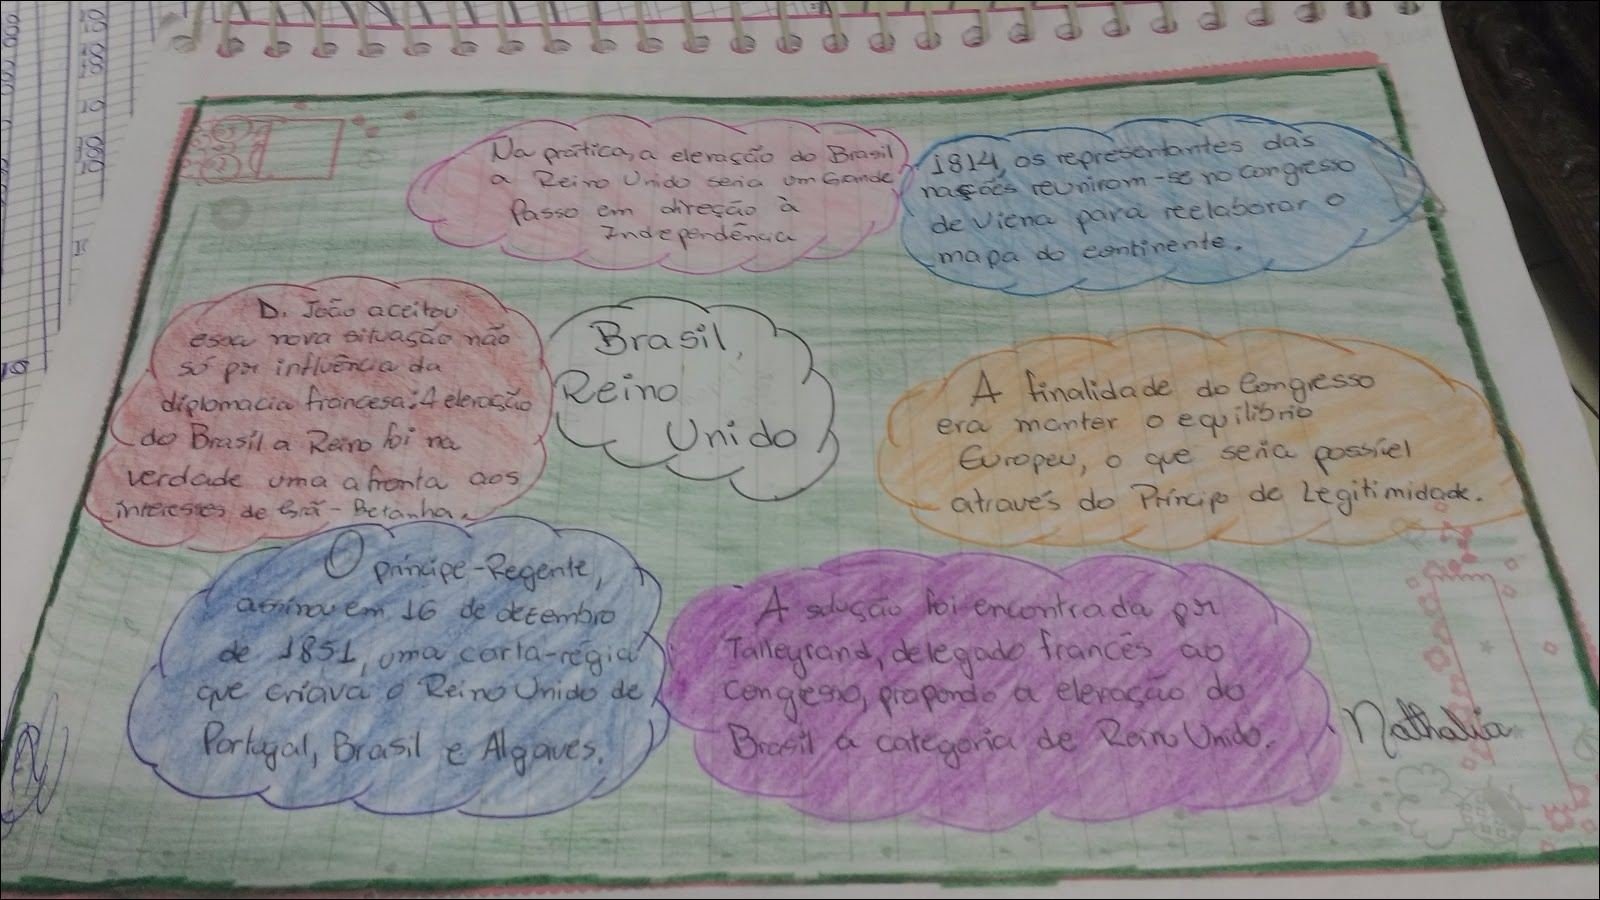 Na prática, a elevação do Brasil
a Reino Unido seria um Grande
Passo em direção à
Independência
1814, os representantes das
nações reuniram-se no congresso
de Viena para reelaborar o
mapa do continente.
D. João aceitou
essa nova situação não
só por influência da
diplomacia francesa: A elevação
do Brasil a Reino foi na
verdade uma afronta aos
interesses de Grã-Betanha.
Brasil,
Reino
Unido
A finalidade do Congresso
era manter o equilíbrio
Europeu, o que seria possível
através do Príncipo de Legitimidade.
O príncipe-Regente,
assinou em 16 de dezembro
de 1851, uma carta-régia
que criava o Reino Unido de
Portugal, Brasil e Algaves.
A solução foi encontrada por
Talleyrand, delegado francês ao
congresso, propondo a elevação do
Brasil a categoria de Reino Unido.
Nathalia